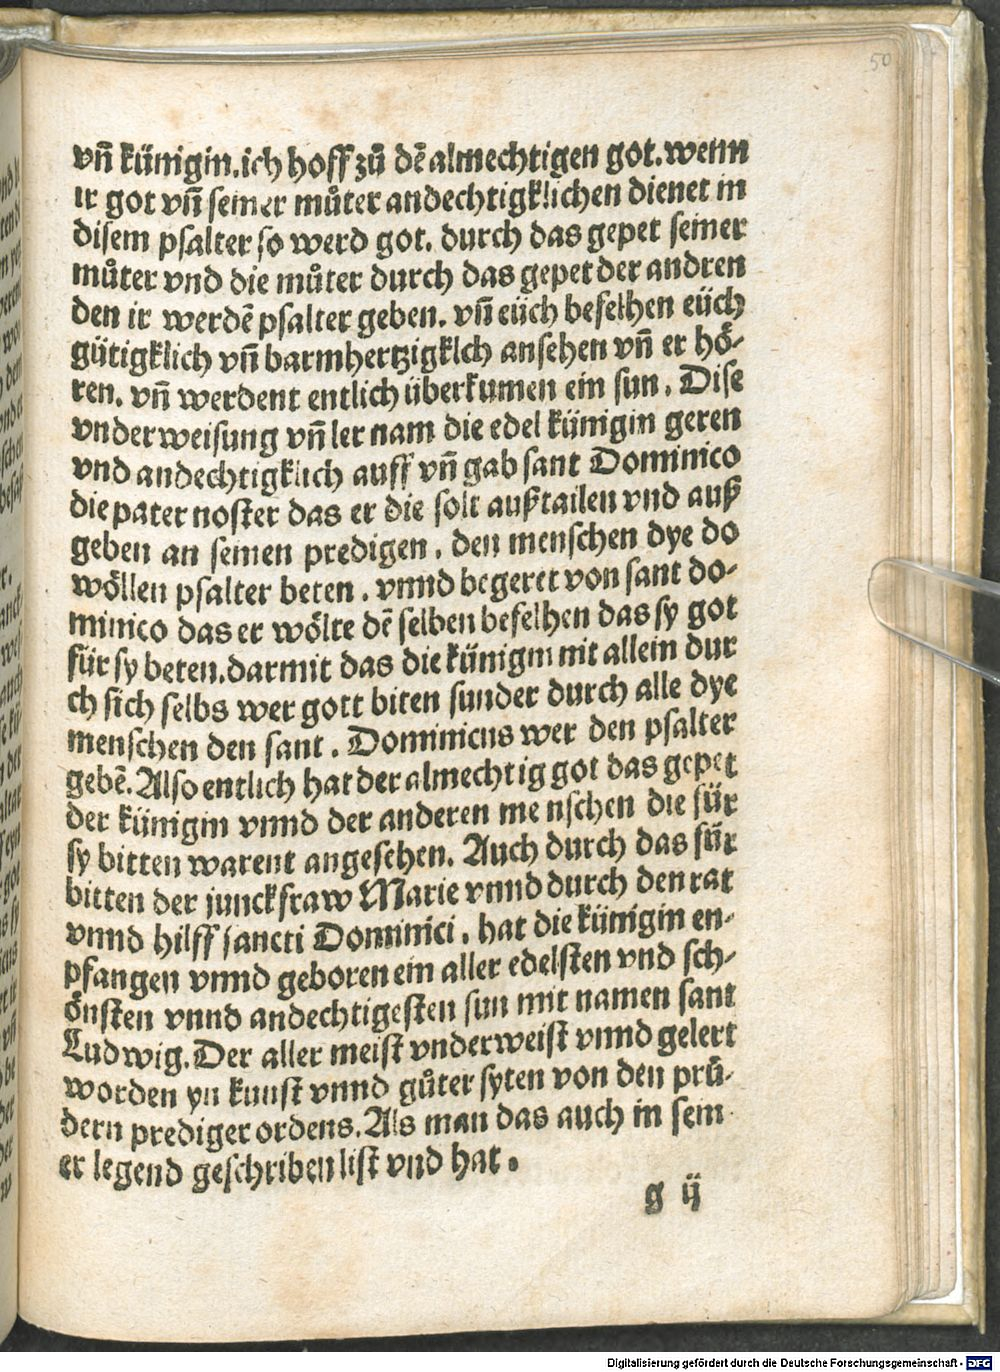 50
vñ künigin.ich hoff zů dē almechtigen got.wenn
ir got vñ seiner můter andechtigklichen dienet in
disem psalter so werd got. durch das gepet seiner
můter vnd die můter durch das gepet der andren
den ir werdē psalter geben. vñ eüch befelhen eüch
gütigklich vñ barmhertzigklch ansehen vñ er hö-
ren. vñ werdent entlich überkumen ein sun. Dise
vnderweisung vñ ler nam die edel künigin geren
vnd andechtigklich auff vñ gab sant Dominico
die pater noster das er die solt außtailen vnd auß
geben an seinen predigen. den menschen dye do
wöllen psalter beten. vnnd begeret von sant do-
minico das er wölte dē selben befelhen das sy got
für sy beten.darmit das die künigin nit allein dur
ch sich selbs wer gott biten sunder durch alle dye
menschen den sant. Dominicus wer den psalter
gebē. Also entlich hat der almechtig got das gepet
der künigin vnnd der anderen me nschen die für
sy bitten warent angesehen. Auch durch das für
bitten der junckfraw Marie vnnd durch den rat
vnnd hilff sancti Dominici. hat die künigin en-
pfangen vnnd geboren ein aller edelsten vnd sch-
önsten vnnd andechtigesten sun mit namen sant
Ludwig. Der aller meist vnderweist vnnd gelert
worden yn kunst vnnd gůter syten von den prü-
dern prediger ordens. Als man das auch in sein
er legend geschriben list vnd hat.
g ij
Digitalisierung gefördert durch die Deutsche Forschungsgemeinschaft - DFG